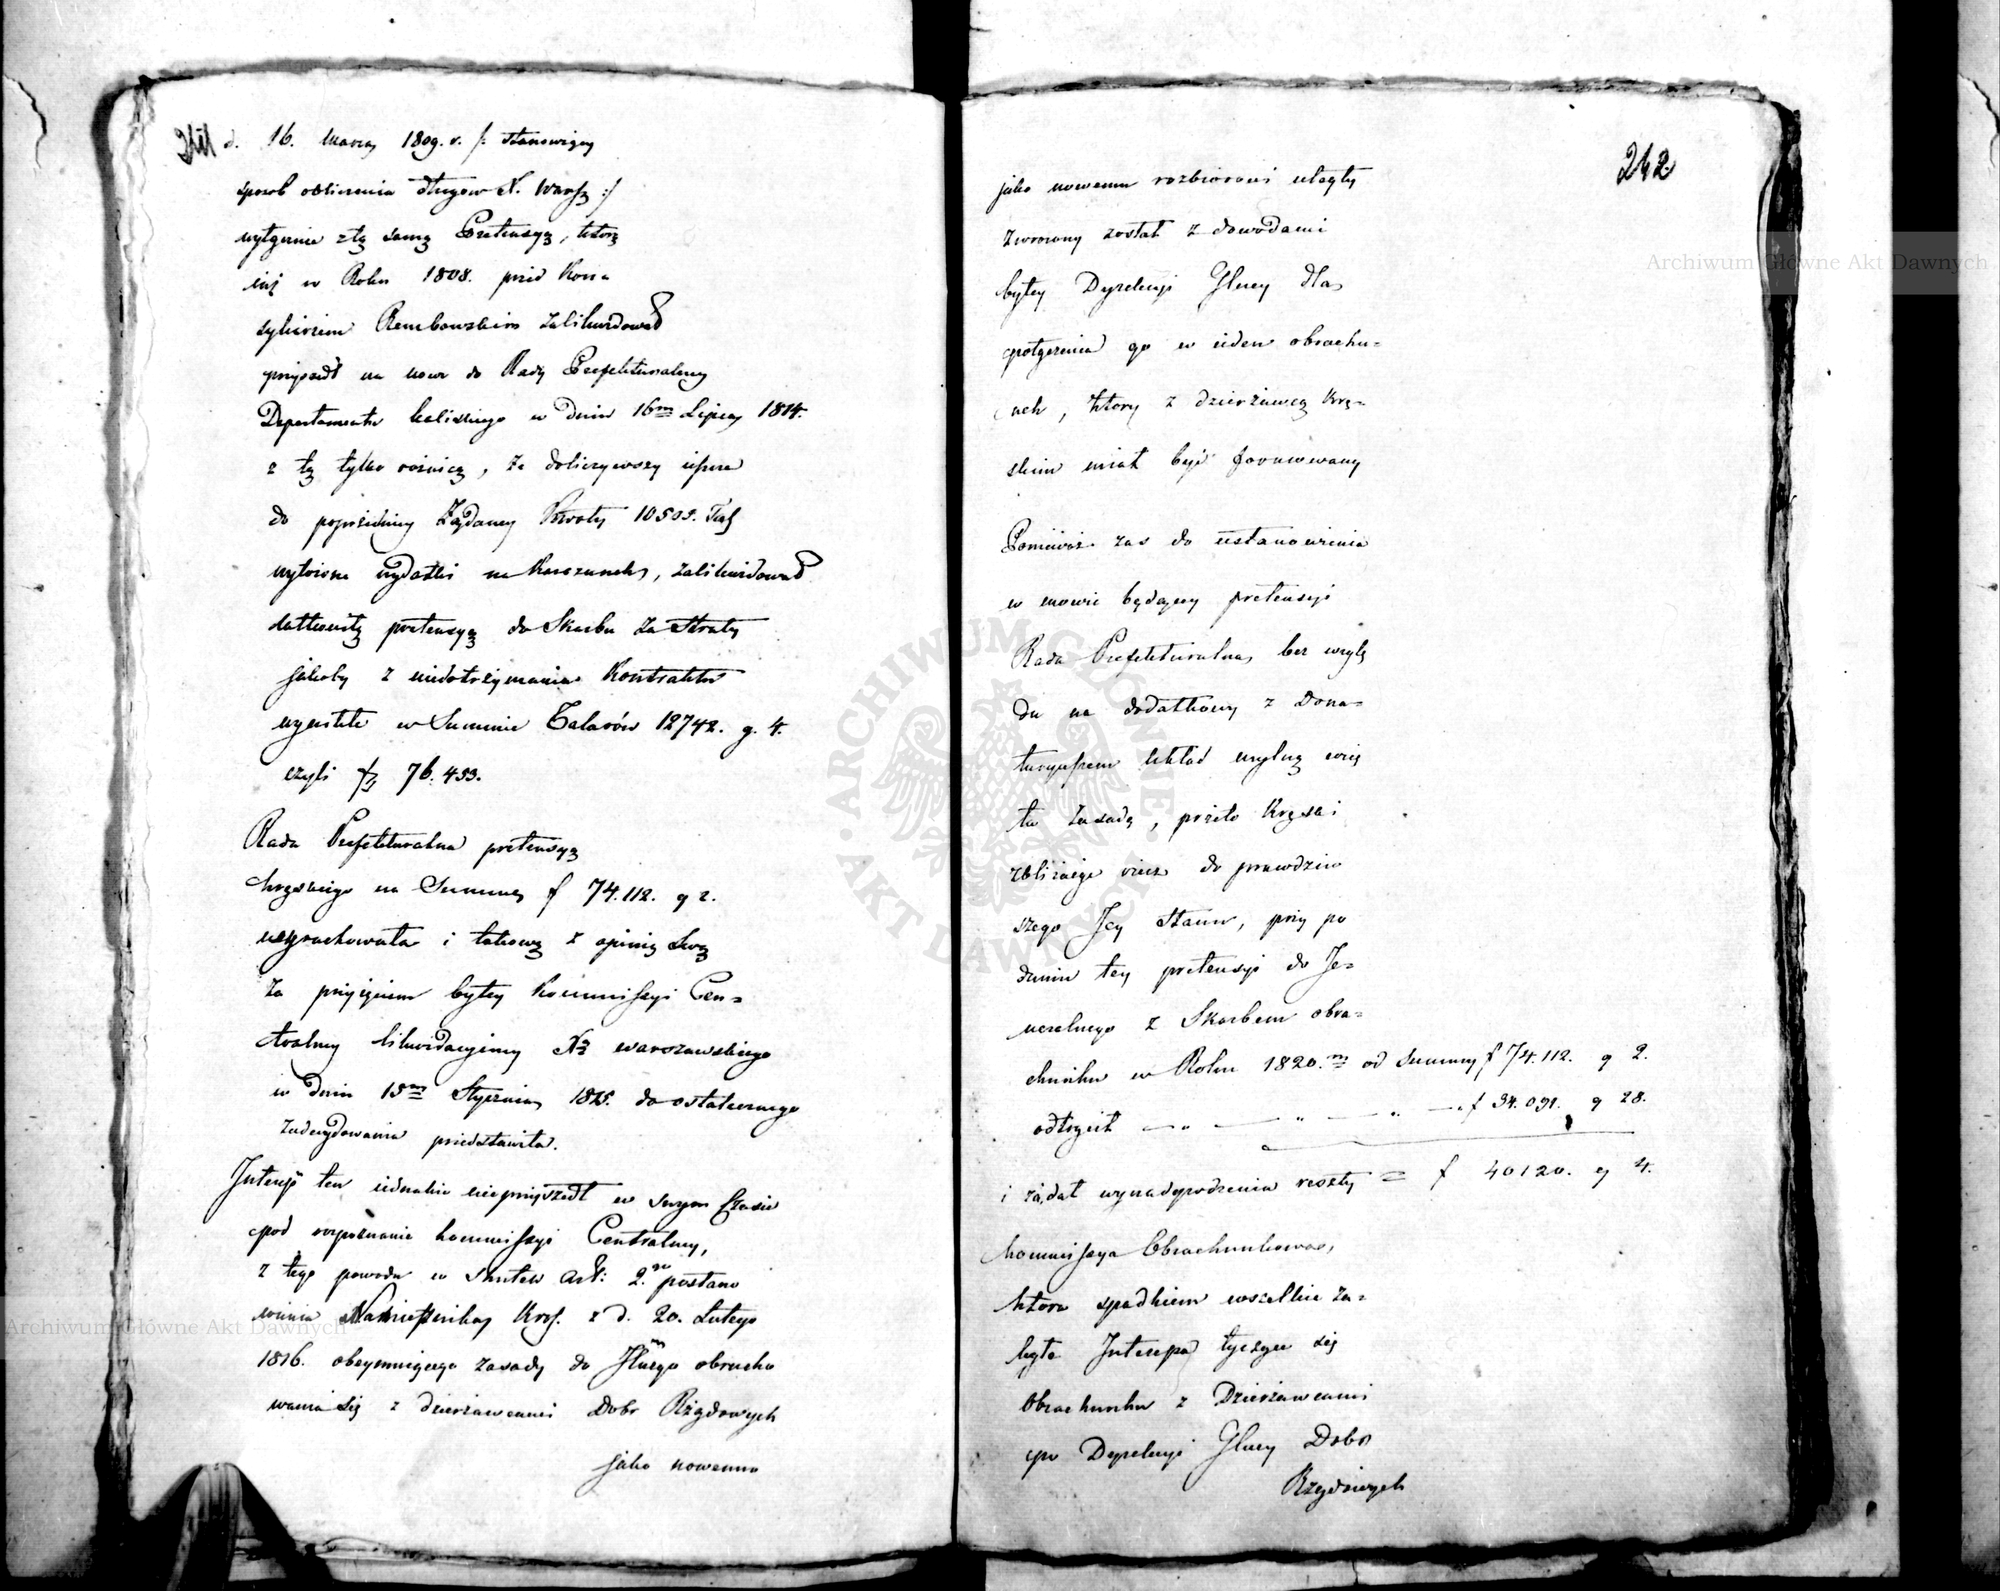 241
d. 16. Marca 1809. r. /: stanowiący
sposób obliczenia długów X. Warsz :/
wyłącznie z tą samą Pretensyą, którą
iuż w Roku 1808. przed Kom
Rembowskim zalikwidował
przyszedł na nowo do Rady Prefekturalney
Departamentu kaliskiego w Dniu 16m Lipca 1814.
z tą tylko różnicą, że doliczywszy
do poprzedniey Żądaney Kwoty 10505. Tal
wydatki na , zalikwidował
pretensyą do Skarbu za Straty
jakoby z niedotrzymania Kontraktu
w Summie Talarów 12742. g. 4.
czyli fzł 76.453.
Rada Prefekturalna pretensyą
Kręskiego na Summę f 74.112. g 2.
wyrachowała i takową z opinią Swą
za przyięciem byłey Kommissyi Cen=
tralney likwidacyiney Xa warszawskiego
w Dniu 15m Stycznia 1815. do ostatecznego
zadecydowania przedstawiła.
Interess ten iednakże nieprzyszedł w swym Czasie
pod rozpoznanie kommissyi Centralney,
z tego powodu w skutek art: 2.go postano
wienia Namiestnika Król. z d. 20. Lutego
1816. obeymuiącego zasady do Głnego obracho
wania się z dzierżawcami Dobr Rządowych
jako nowemu
242
jako nowemu rozbiorowi uległy
zwrócony został z dowodami
byłey Dyrekcyi Głney dla
połączenia go w ieden obrachu=
nek, który z dzierżawcą Krę=
skim miał być formowany
Ponieważ zaś do ustanowienia
w mowie będącey pretensyi
Rada Prefekturalna bez wzglę
du na dodatkowy z Dona=
taryuszem Układ mylną wzię
ła zasadę, przeto Kręski
zbliżaiąc rzecz do prawdziw
szego Jey Stanu, przy po
daniu tey pretensyi do Je=
neralnego z Skarbem obra=
chunku w Roku 1820.m od Summy f 74.112. g 2.
odtrącił — „ — „ — f 34.091. g 28.
i żądał wynadgrodzenia reszty = f 40120. g 4.
Kommissya Obrachunkowa,
która spadkiem wszelkie za=
ległe Interessa tyczące się
Obrachunku z Dzierżawcami
po Dyrekcyi Głney Dobr
Rządowych
Archiwum Główne Akt Dawnych
Archiwum Główne Akt Dawnych
ARCHIWUM GŁÓWNE AKT DAWNYCH